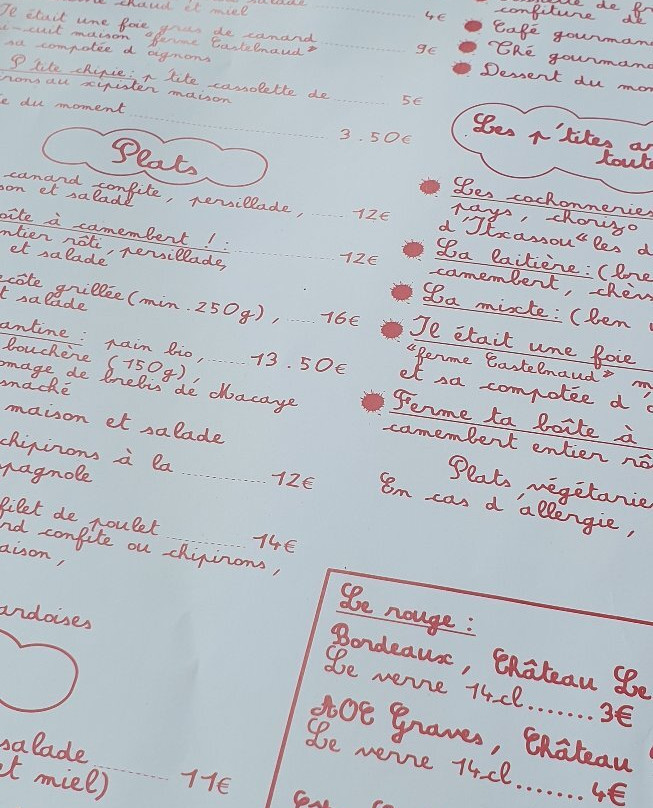 chaud et miel
4€
Il était une foie gras de canard
mi-cuit maison "ferme Castelnaud"
sa compotée d'oignons
9€
P'tite chipie: p'tite cassolette de
chipirons au xipister maison
5€
du moment
3.50€
Plats
canard confite, persillade,
12€
et salade
boîte à camembert !:
entier rôti, persillade,
12€
et salade
côte grillée (min.250g),
16€
salade
cantine: pain bio,
13.50€
bouchère (150g),
fromage de brebis de Macaye
maison et salade
chipirons à la
12€
filet de poulet
14€
confite ou chipirons,
ardoises
salade
et miel)
11€
confiture de
Café gourmand
Thé gourmand
Dessert du
Les p'tites
Les cochonneries
pays, chorizo
d'Itxassou "les
La laitière: (bre
camembert, chèv
La mixte: (ben
Il était une foie
"ferme Castelnaud"
et sa compotée d'
Ferme ta boîte à
camembert entier rô
Plats végétarie
En cas d'allergie,
Le rouge :
Bordeaux, Château Le
Le verre 14cl.......3€
AOC Graves, Château
Le verre 14cl.......4€